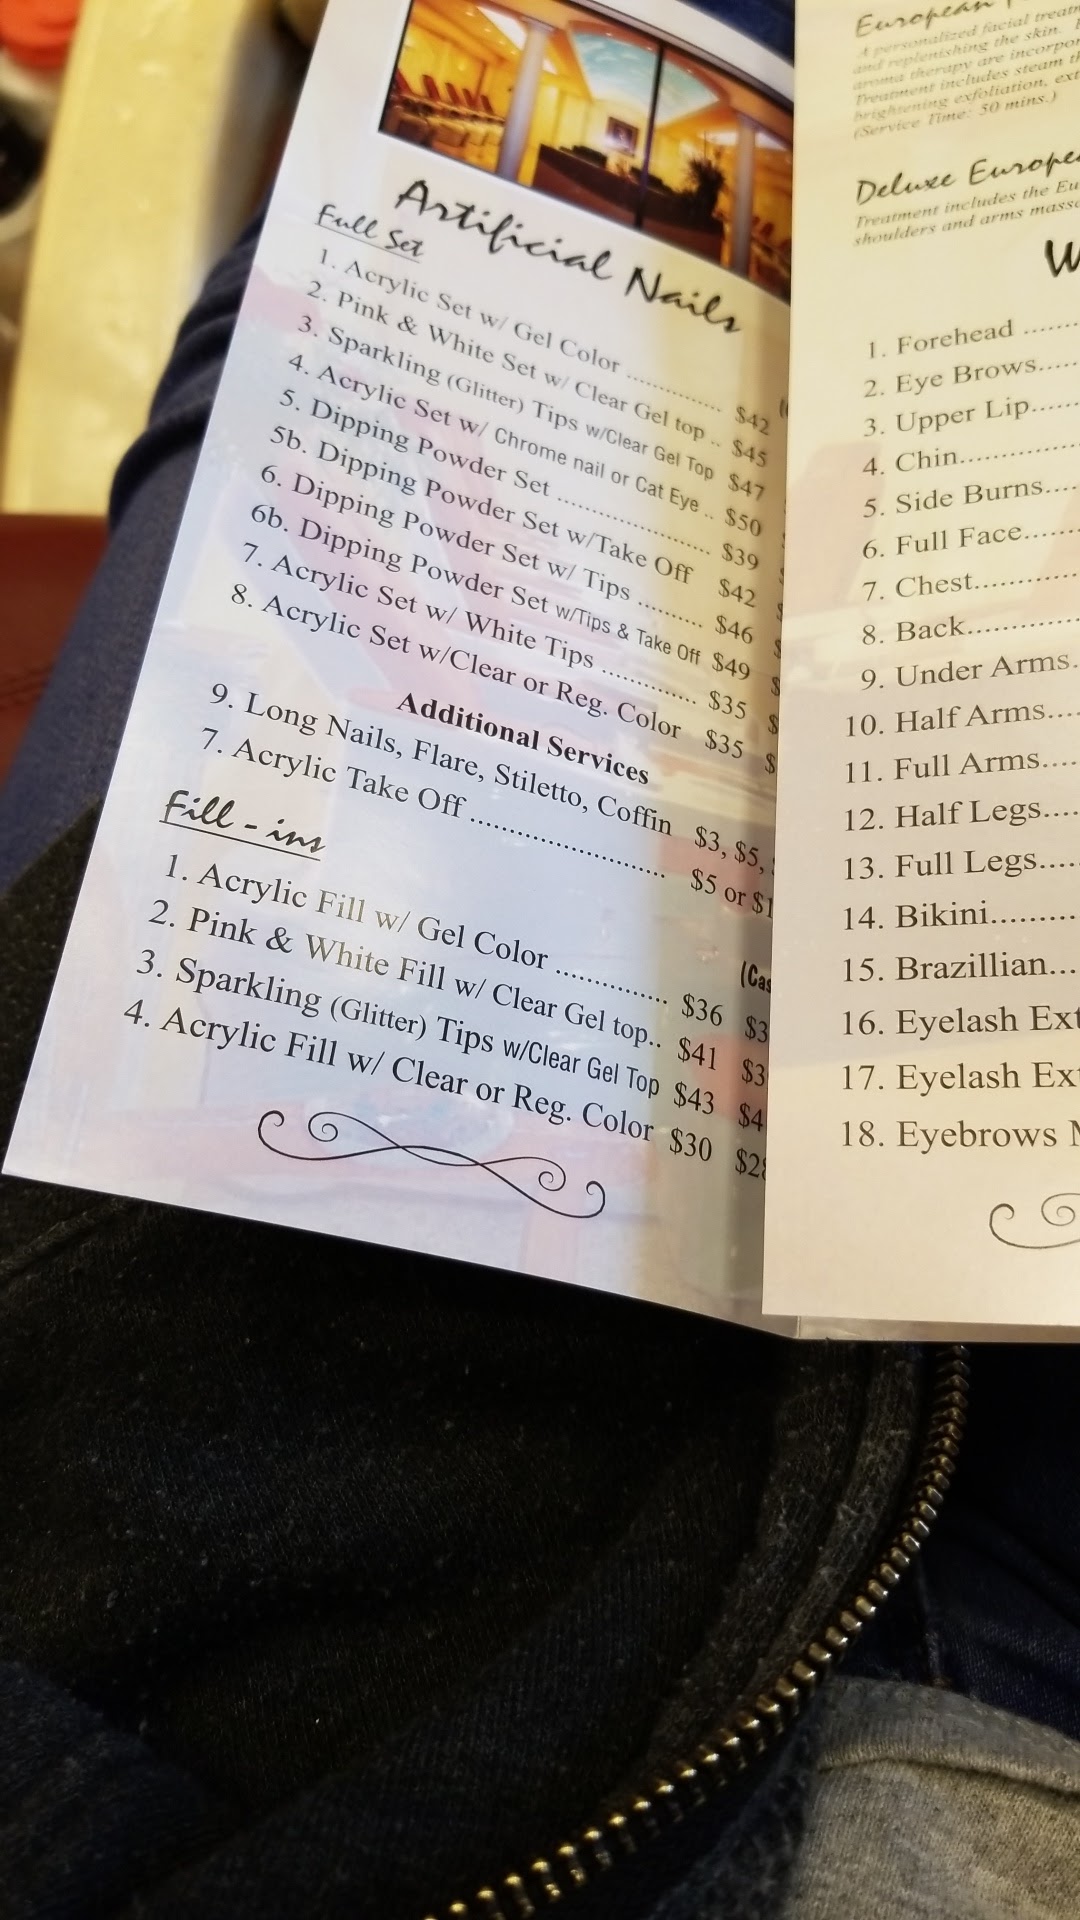 Artificial Nails
Full Set
1. Acrylic Set w/ Gel Color ............... $42
2. Pink & White Set w/ Clear Gel top .. $45
3. Sparkling (Glitter) Tips w/Clear Gel Top $47
4. Acrylic Set w/ Chrome nail or Cat Eye .. $50
5. Dipping Powder Set ........................ $39
5b. Dipping Powder Set w/Take Off $42
6. Dipping Powder Set w/ Tips .......... $46
6b. Dipping Powder Set w/Tips & Take Off $49
7. Acrylic Set w/ White Tips .............. $35
8. Acrylic Set w/Clear or Reg. Color $35
Additional Services
9. Long Nails, Flare, Stiletto, Coffin $3, $5,
7. Acrylic Take Off ............................. $5 or
Fill - ins
1. Acrylic Fill w/ Gel Color ................. $36
2. Pink & White Fill w/ Clear Gel top.. $41
3. Sparkling (Glitter) Tips w/Clear Gel Top $43
4. Acrylic Fill w/ Clear or Reg. Color $30
European
A personalized facial
and replenishing the skin.
aroma therapy are
Treatment includes steam
brightening exfoliation,
(Service Time: 50 mins.)
Deluxe
Treatment includes the
shoulders and arms
1. Forehead .......
2. Eye Brows.....
3. Upper Lip......
4. Chin...............
5. Side Burns....
6. Full Face.......
7. Chest.............
8. Back..............
9. Under Arms.
10. Half Arms....
11. Full Arms....
12. Half Legs....
13. Full Legs....
14. Bikini.........
15. Brazillian...
16. Eyelash
17. Eyelash
18. Eyebrows